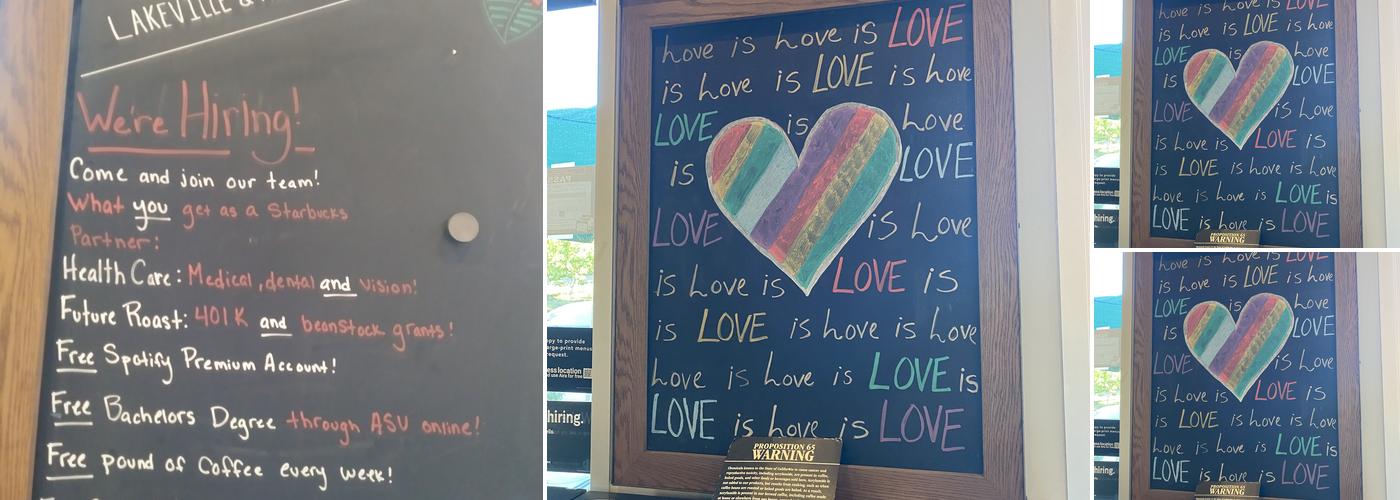 LAKEVILLE &
We're Hiring!
Come and join our team!
What you get as a Starbucks
Partner:
Health Care: Medical, dental and vision!
Future Roast: 401K and beanstock grants!
Free Spotify Premium Account!
Free Bachelors Degree through ASU online!
Free pound of Coffee every week!
Love is Love is LOVE
is Love is LOVE is Love
LOVE is Love
is LOVE
LOVE is Love
is Love is LOVE is
is LOVE is Love is Love
Love is Love is LOVE is
LOVE is Love is LOVE
PROPOSITION 65
WARNING
hiring.
Love is Love is LOVE
is Love is LOVE is Love
LOVE is Love
is LOVE
LOVE is Love
is Love is LOVE is
is LOVE is Love is Love
Love is Love is LOVE is
LOVE is Love is LOVE
PROPOSITION 65
WARNING
hiring.
Love is Love is LOVE
is Love is LOVE is Love
LOVE is Love
is LOVE
LOVE is Love
is Love is LOVE is
is LOVE is Love is Love
Love is Love is LOVE is
LOVE is Love is LOVE
PROPOSITION 65
WARNING
hiring.